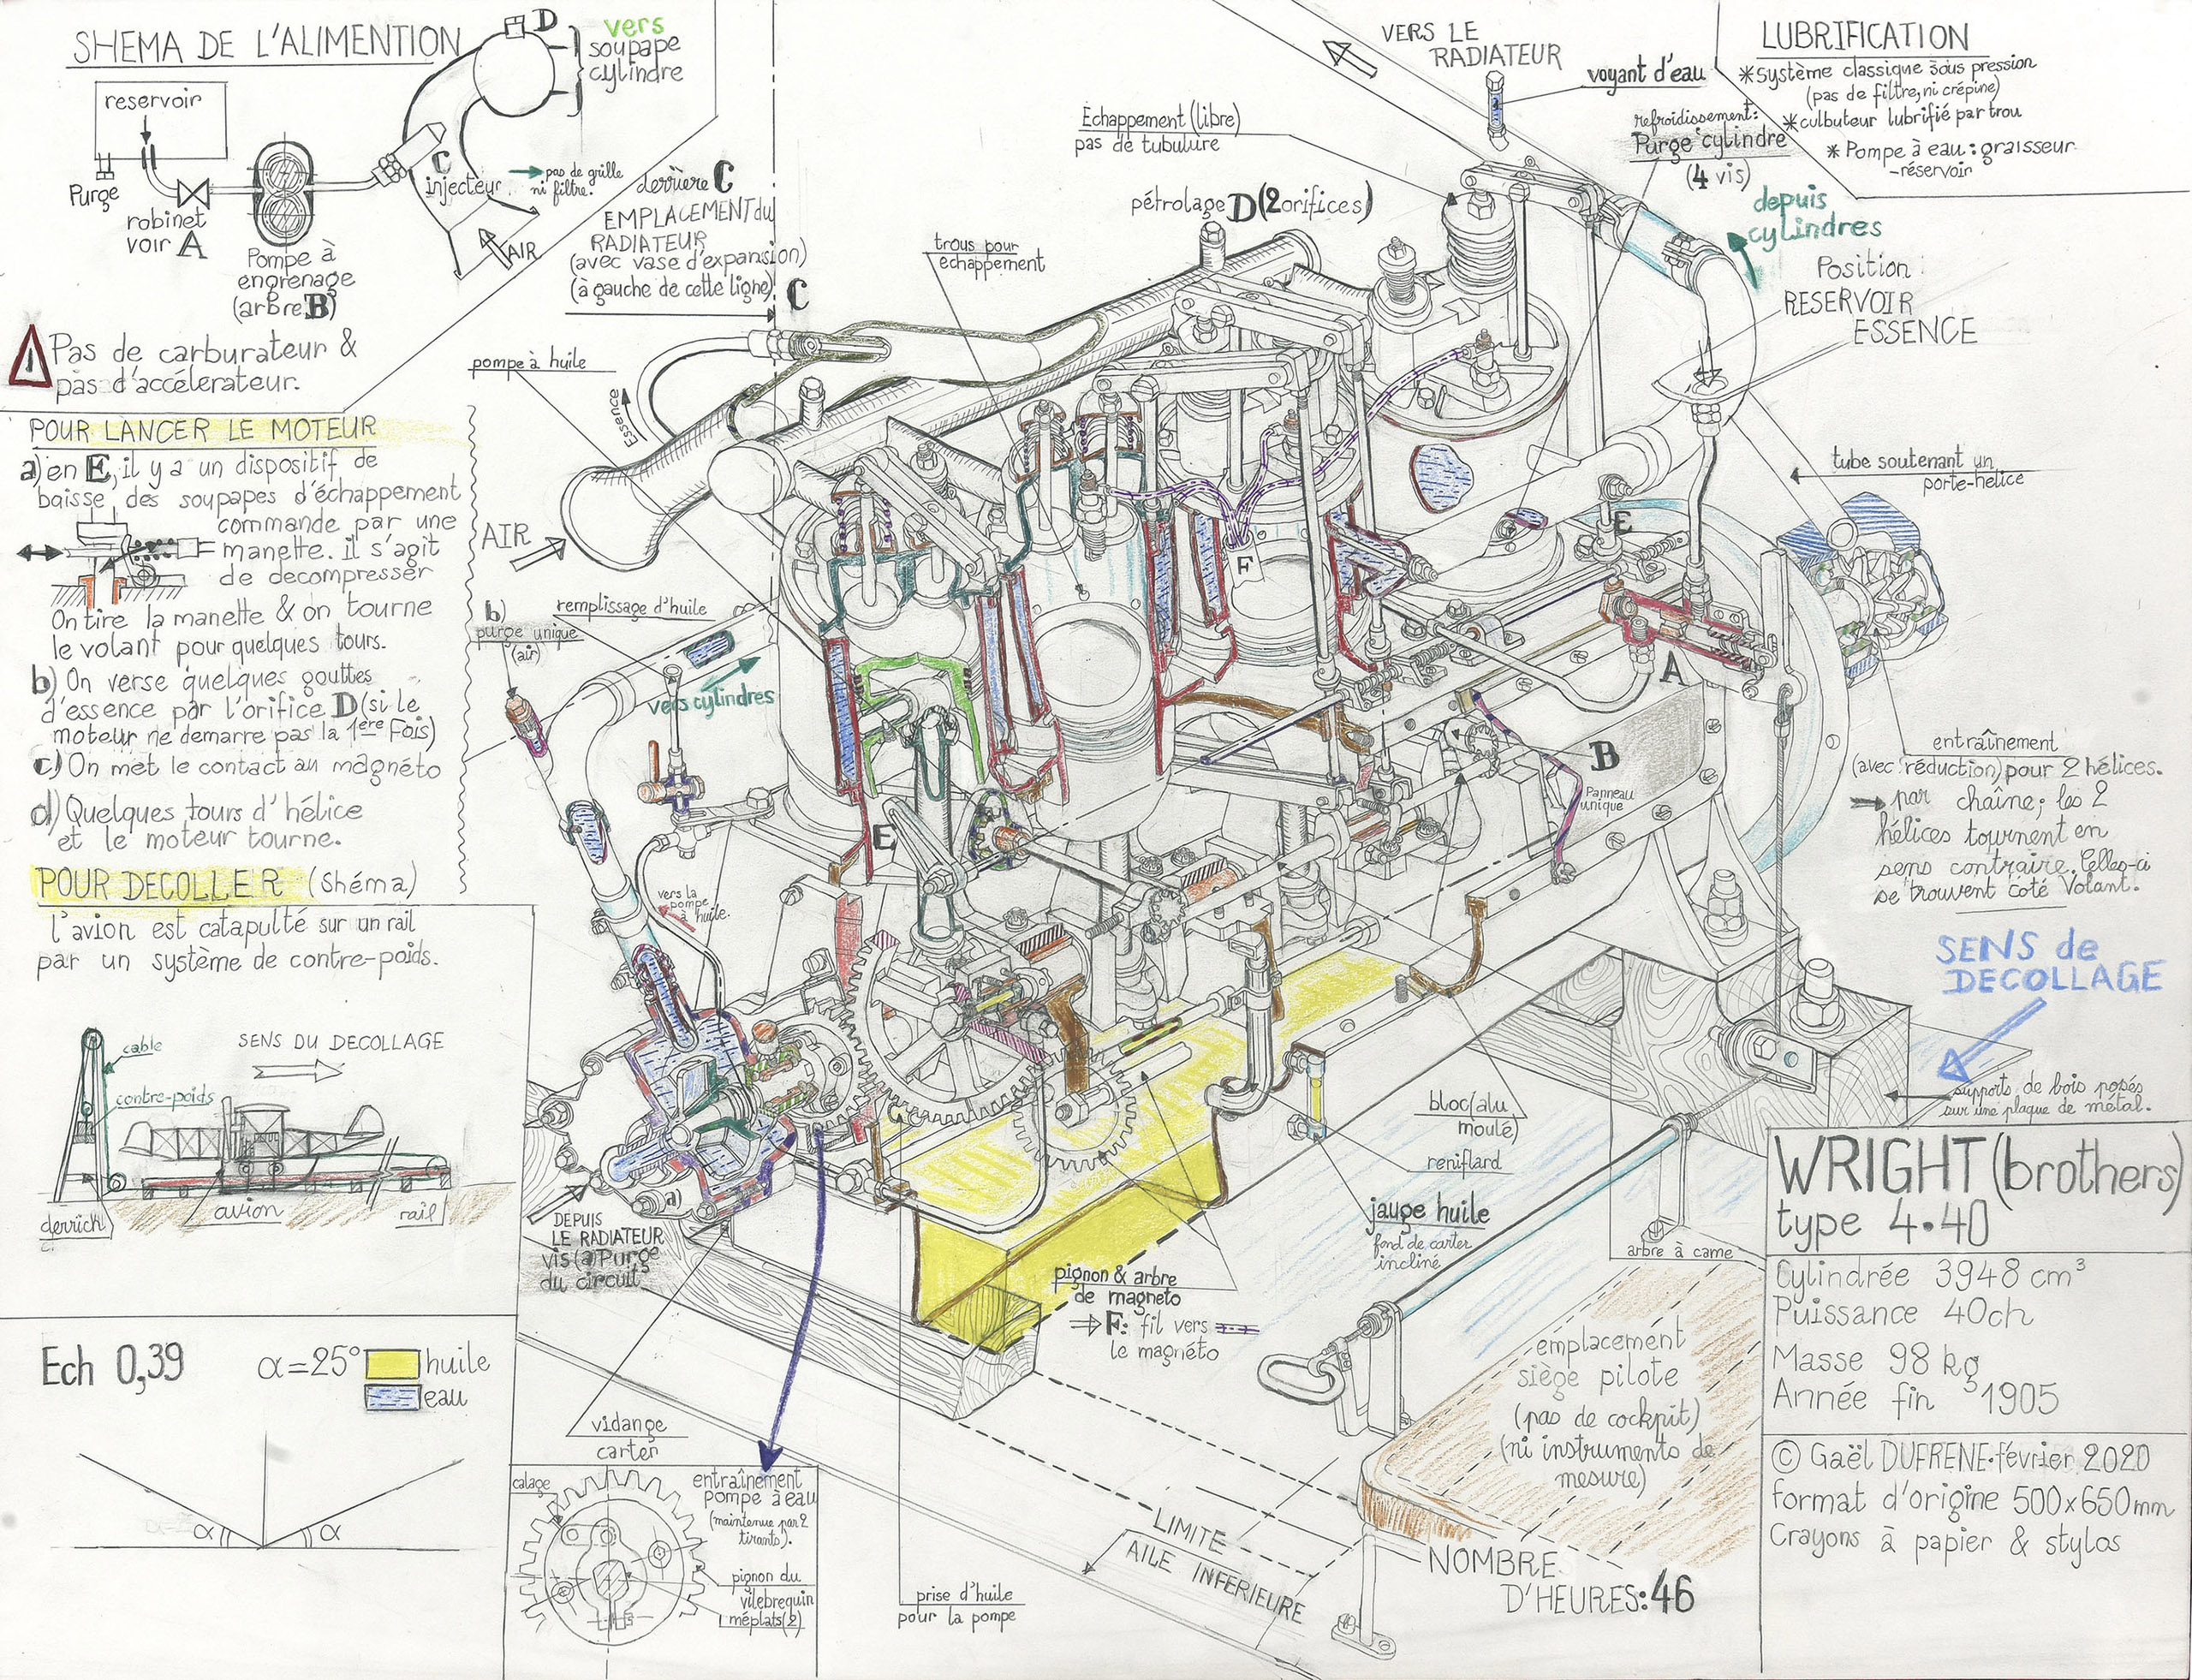 SHEMA DE L'ALIMENTION
reservoir
Purge
robinet
voir A
Pompe à
engrenage
(arbre B)
C
injecteur
pas de grille
ni filtre.
AIR
D
vers
soupape
cylindre
derrière C
EMPLACEMENT du
RADIATEUR
(avec vase d'expansion)
(à gauche de cette ligne)
C
Pas de carburateur &
pas d'accélerateur.
POUR LANCER LE MOTEUR
a) en E, il y a un dispositif de
baisse des soupapes d'échappement
commande par une
manette. il s'agit
de decompresser
On tire la manette & on tourne
le volant pour quelques tours.
b) On verse quelques gouttes
d'essence par l'orifice D (si le
moteur ne demarre pas la 1ère Fois)
c) On met le contact au magnéto
d) Quelques tours d'hélice
et le moteur tourne.
POUR DECOLLER (Shéma)
l'avion est catapulté sur un rail
par un système de contre-poids.
cable
SENS DU DECOLLAGE
contre-poids
derrick
avion
rail
Ech 0,39
α=25°
huile
eau
α
α
VERS LE
RADIATEUR
voyant d'eau
Echappement (libre)
pas de tubulure
refroidissement:
Purge cylindre
(4 vis)
pétrolage D (2 orifices)
trous pour
echappement
pompe à huile
Essence
AIR
remplissage d'huile
b)
purge unique
(air)
vers cylindres
vers la
pompe
à huile.
E
F
E
A
B
Panneau
unique
LUBRIFICATION
*Système classique sous pression
(pas de filtre, ni crépine)
*culbuteur lubrifié par trou
*Pompe à eau: graisseur
-réservoir
depuis
cylindres
Position
RESERVOIR
ESSENCE
tube soutenant un
porte-hélice
entraînement
(avec réduction) pour 2 hélices.
par chaîne; les 2
hélices tournent en
sens contraire. Celles-ci
se trouvent coté Volant.
SENS de
DECOLLAGE
supports de bois posés
sur une plaque de métal.
bloc (alu
moulé)
reniflard
jauge huile
fond de carter
incliné
arbre à came
pignon & arbre
de magneto
F: fil vers
le magnéto
a)
DEPUIS
LE RADIATEUR
vis (a) Purge
du circuit
vidange
carter
calage
entraînement
pompe à eau
(maintenue par 2
tirants).
pignon du
vilebrequin
méplats (2)
prise d'huile
pour la pompe
LIMITE
AILE INFÉRIEURE
emplacement
siège pilote
(pas de cockpit)
(ni instruments de
mesure)
NOMBRE
D'HEURES: 46
WRIGHT (brothers)
type 4.40
Cylindrée 3948 cm³
Puissance 40ch
Masse 98 kg
Année fin 1905
© Gaël DUFRENE. février 2020
format d'origine 500x650mm
Crayons à papier & stylos